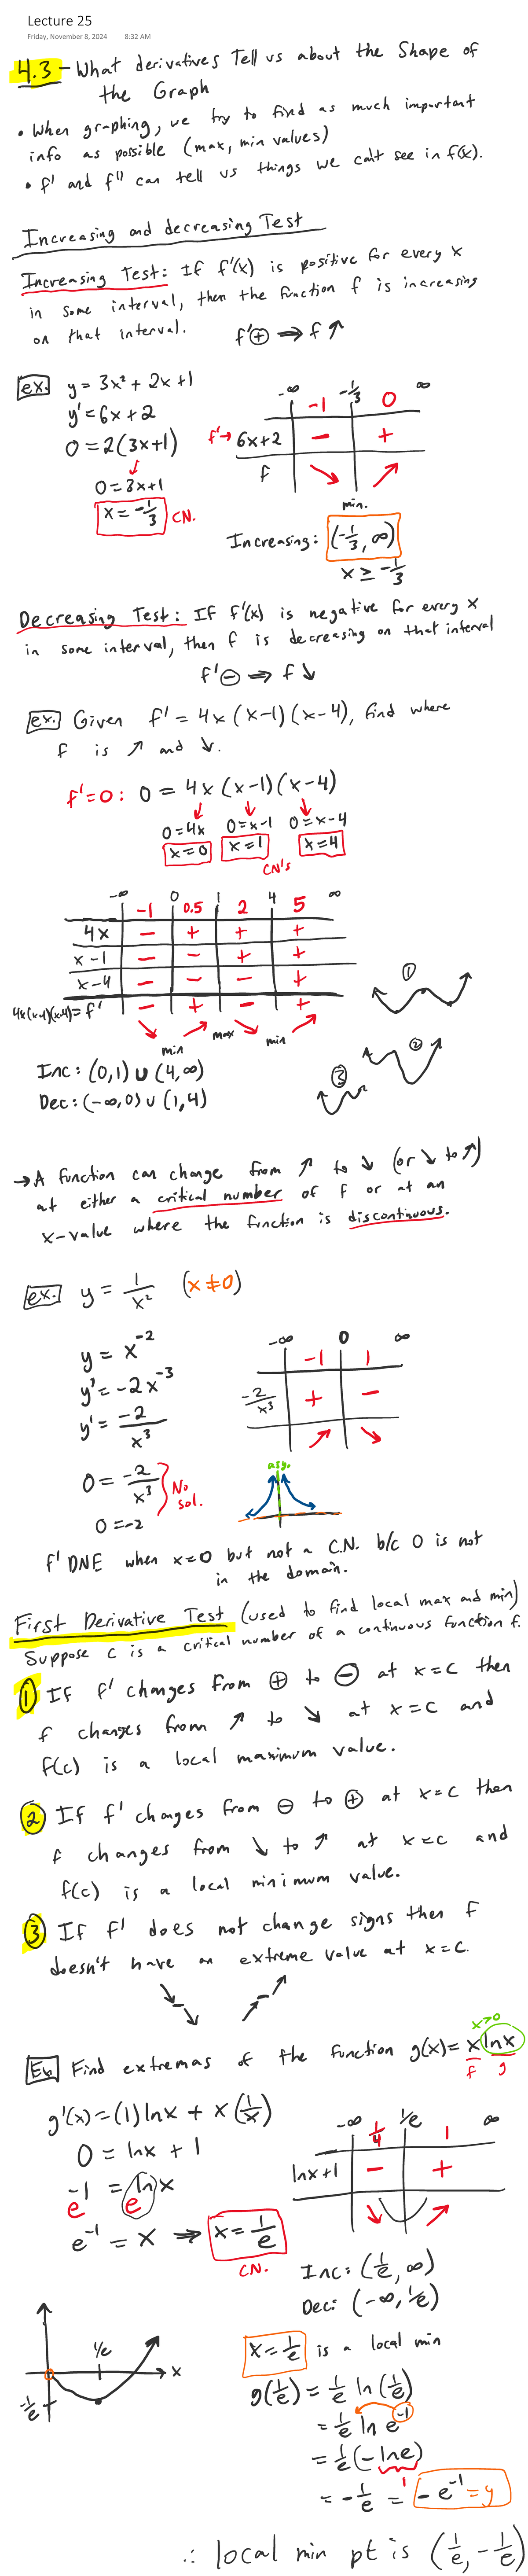 Lecture 25
Friday, November 8, 2024 8:32 AM
4.3 - What derivatives Tell us about the Shape of
the Graph
• When graphing, we try to find as much important
info as possible (max, min values)
• f' and f'' can tell us things we can't see in f(x).
Increasing and decreasing Test
Increasing Test: If f'(x) is positive for every x
in some interval, then the function f is increasing
on that interval. f'⊕ ⟹ f ↑
ex. y = 3x² + 2x + 1
y' = 6x + 2
0 = 2(3x+1)
0 = 3x+1
x = -1/3 CN.
-∞ -1/3 ∞
-1 0
f'→ 6x+2 - +
f ↘ ↗
min.
Increasing: (-1/3, ∞)
x ≥ -1/3
Decreasing Test: If f'(x) is negative for every x
in some interval, then f is decreasing on that interval
f'⊖ ⟹ f ↓
ex. Given f' = 4x(x-1)(x-4), find where
f is ↗ and ↘.
f'=0: 0 = 4x(x-1)(x-4)
0=4x 0=x-1 0=x-4
x=0 x=1 x=4
CN's
-∞ 0 1 4 ∞
-1 0.5 2 5
4x - + + +
x-1 - - + +
x-4 - - - +
4x(x-1)(x-4) = f' - + - +
↘ ↗ ↘ ↗
min max min
Inc: (0,1) ∪ (4,∞)
Dec: (-∞,0) ∪ (1,4)
①
②
③
→ A function can change from ↗ to ↘ (or ↘ to ↗)
at either a critical number of f or at an
x-value where the function is discontinuous.
ex. y = 1/x² (x≠0)
y = x⁻²
y' = -2x⁻³
y' = -2/x³
0 = -2/x³
0 = -2
No
sol.
-∞ 0 ∞
-1 1
-2/x³ + -
↗ ↘
asy.
f' DNE when x=0 but not a C.N. b/c 0 is not
in the domain.
First Derivative Test (used to find local max and min)
Suppose c is a critical number of a continuous function f.
① If f' changes from ⊕ to ⊖ at x=c then
f changes from ↗ to ↘ at x=c and
f(c) is a local maximum value.
② If f' changes from ⊖ to ⊕ at x=c then
f changes from ↘ to ↗ at x=c and
f(c) is a local minimum value.
③ If f' does not change signs then f
doesn't have an extreme value at x=c.
x>0
Ex. Find extremas of the function g(x) = x lnx
f g
g'(x) = (1) lnx + x(1/x)
0 = lnx + 1
-1 = lnx
e e
e⁻¹ = x ⟹ x = 1/e
CN.
-∞ 1/e ∞
1/4 1
lnx+1 - +
↘ ↗
Inc: (1/e, ∞)
Dec: (-∞, 1/e)
x = 1/e is a local min
g(1/e) = 1/e ln(1/e)
= 1/e ln e⁻¹
= 1/e (-lne)
1
= -1/e = -e⁻¹ = y
1/e
x
-1/e
∴ local min pt is (1/e, -1/e)